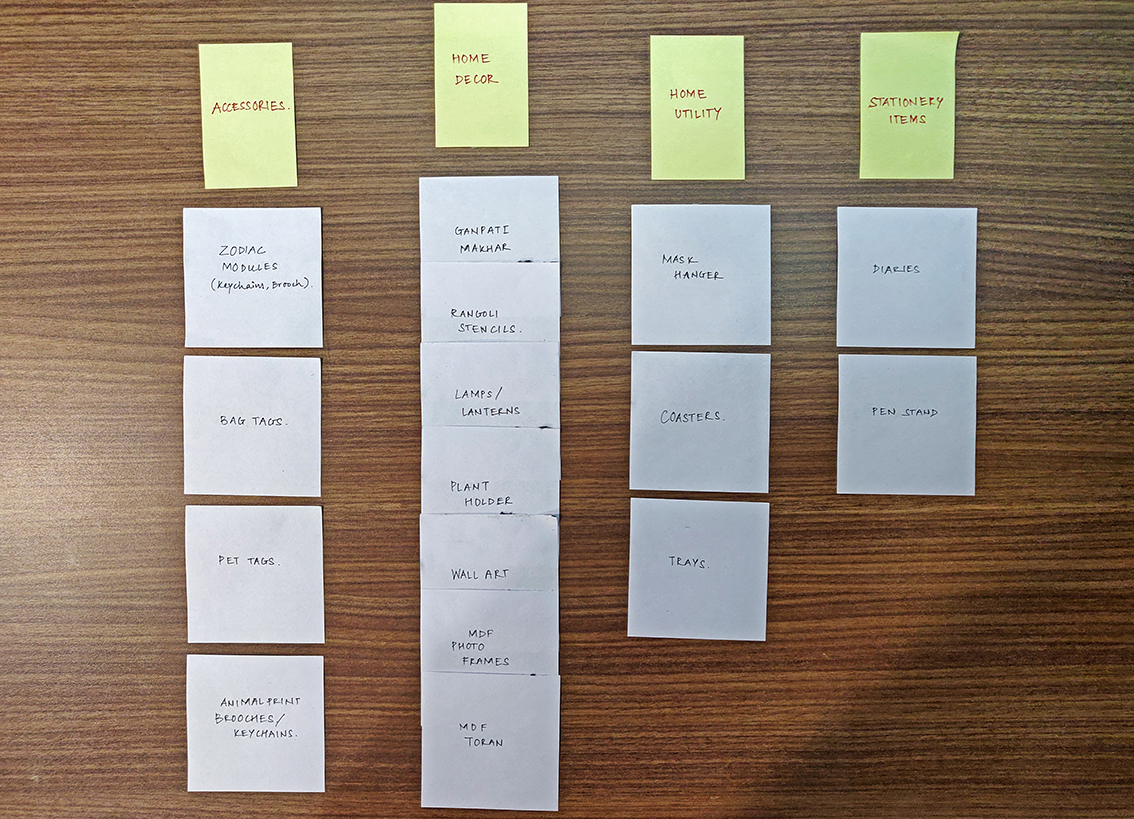 ACCESSORIES.
ZODIAC
MODULES
(Keychains, Brooch).
BAG TAGS.
PET TAGS.
ANIMAL PRINT
BROOCHES/
KEYCHAINS.
HOME
DECOR
GANPATI
MAKHAR
RANGOLI
STENCILS.
LAMPS/
LANTERNS
PLANT
HOLDER
WALL ART
MDF
PHOTO
FRAMES
MDF
TORAN
HOME
UTILITY
MASK
HANGER
COASTERS.
TRAYS.
STATIONERY
ITEMS
DIARIES
PEN STAND